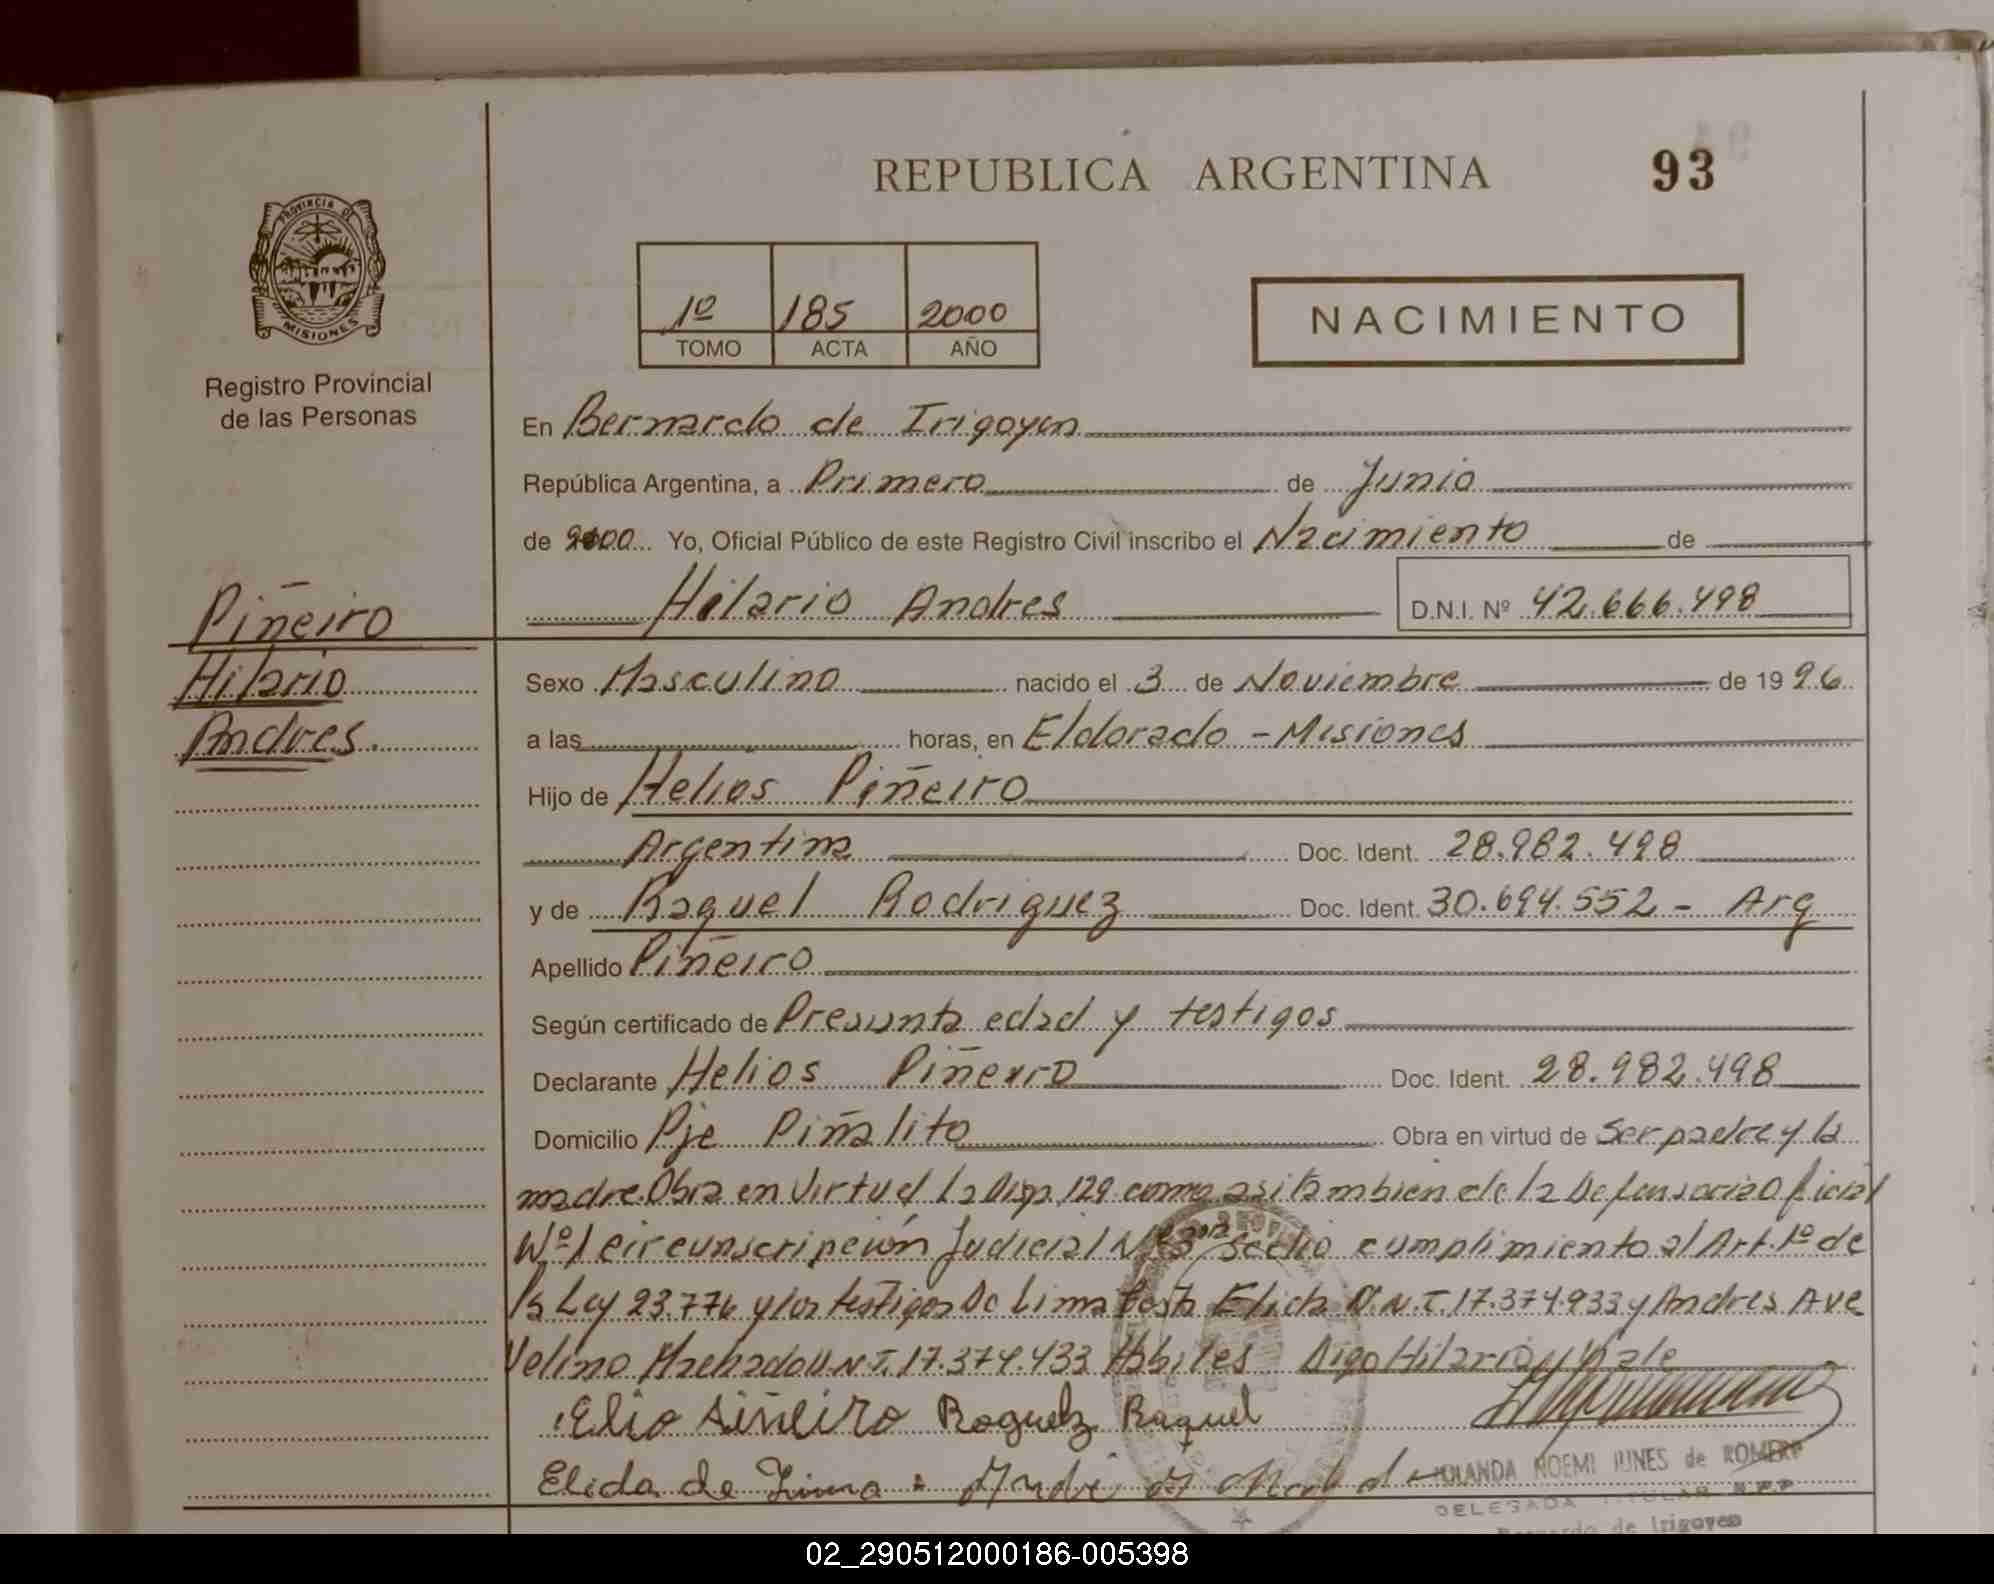 REPUBLICA ARGENTINA
93
PROVINCIA DE
MISIONES
Registro Provincial
de las Personas
1º 185 2000
TOMO ACTA AÑO
NACIMIENTO
En Bernardo de Irigoyen
República Argentina, a Primero de Junio
de 2000 Yo, Oficial Público de este Registro Civil inscribo el Nacimiento de
Hilario Andres D.N.I. Nº 42.666.498
Piñeiro
Hilario
Andres.
Sexo Masculino nacido el 3 de Noviembre de 1996
a las horas, en Eldorado - Misiones
Hijo de Helios Piñeiro
Argentina Doc. Ident. 28.982.498
y de Raquel Rodriguez Doc. Ident. 30.694.552 - Arg
Apellido Piñeiro
Según certificado de Presunta edad y testigos
Declarante Helios Piñeiro Doc. Ident. 28.982.498
Domicilio Pje Piñalito Obra en virtud de ser padre y la
madre. Obra en virtud la Disp. 129 como asi tambien de la Defensoria Oficial
Nº 1 Circunscripción Judicial se dio cumplimiento al Art. 1º de
la Ley 23.776 y los testigos De Lima Elida D.N.I. 17.374.933 y Andres Ave
velino Machado D.N.I. 17.374.433 Habiles Digo Hilario Vale
Elio Piñeiro Raquel
Elida de Lima
YOLANDA NOEMI IUNES de ROMERO
DELEGADA TITULAR R.P.P
Bernardo de Irigoyen
02_290512000186-005398